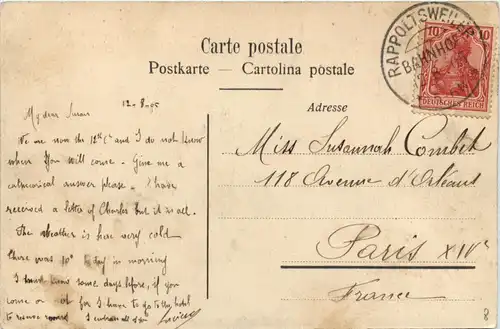 Carte postale
Postkarte — Cartolina postale
Adresse
RAPPOLTSWEILER
BAHNHOF
10 10
DEUTSCHES REICH
12-8-05
My dear Susan
We are now the 12th and I do not know
when you will come - Give me a
answer please - I have
received a letter of Charles but it is all.
The weather is here very cold
there was 10° to day in morning
I know some days before, if you
come or for I have to go to the hotel
to I all
Miss Susannah Combet
118 Avenue d'Orléans
Paris XIVe
France
8